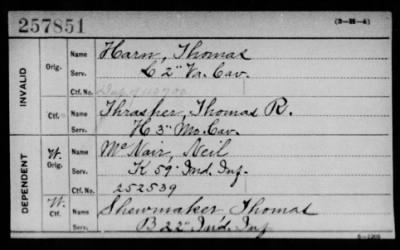 257851
(3-H-4)
INVALID
Orig.
Name Harn, Thomas
Serv. L 2" Va. Cav.
Ctf. No.
Ctf.
Name Thrasher, Thomas R.
Serv. H 3" Mo. Cav.
DEPENDENT
W. Orig.
Name McNair, Neil
Serv. K 59" Ind. Inf.
Ctf. No. 252539
W. Ctf.
Name Shewmaker, Thomas
Serv. B 22" Ind. Inf.